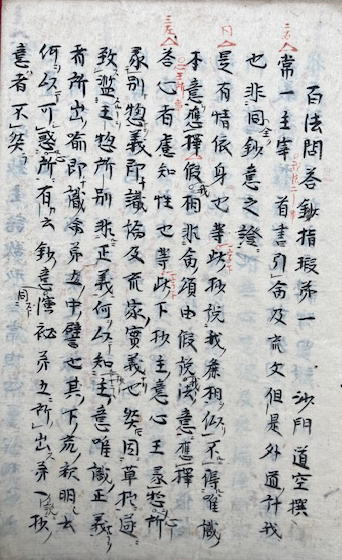 百法問答鈔指瑕第一 沙門 道空撰
常一主宰 首書引論及疏文但是外道計我
也非同鈔意之證
是有情依身也等 此抄説我癡相似不得唯識
本意應擇假相非論頌由假説法意應擇
答心者慮知性也等 此下抄主意心王
別惣義即識論及疏家實義也 因草抄
致濫主惣所別非正義何以知主意唯識正義
者所出喩即識論第五中譬也其下疏釋明
何以可惑所有 鈔意演秘第五所出第
意者不